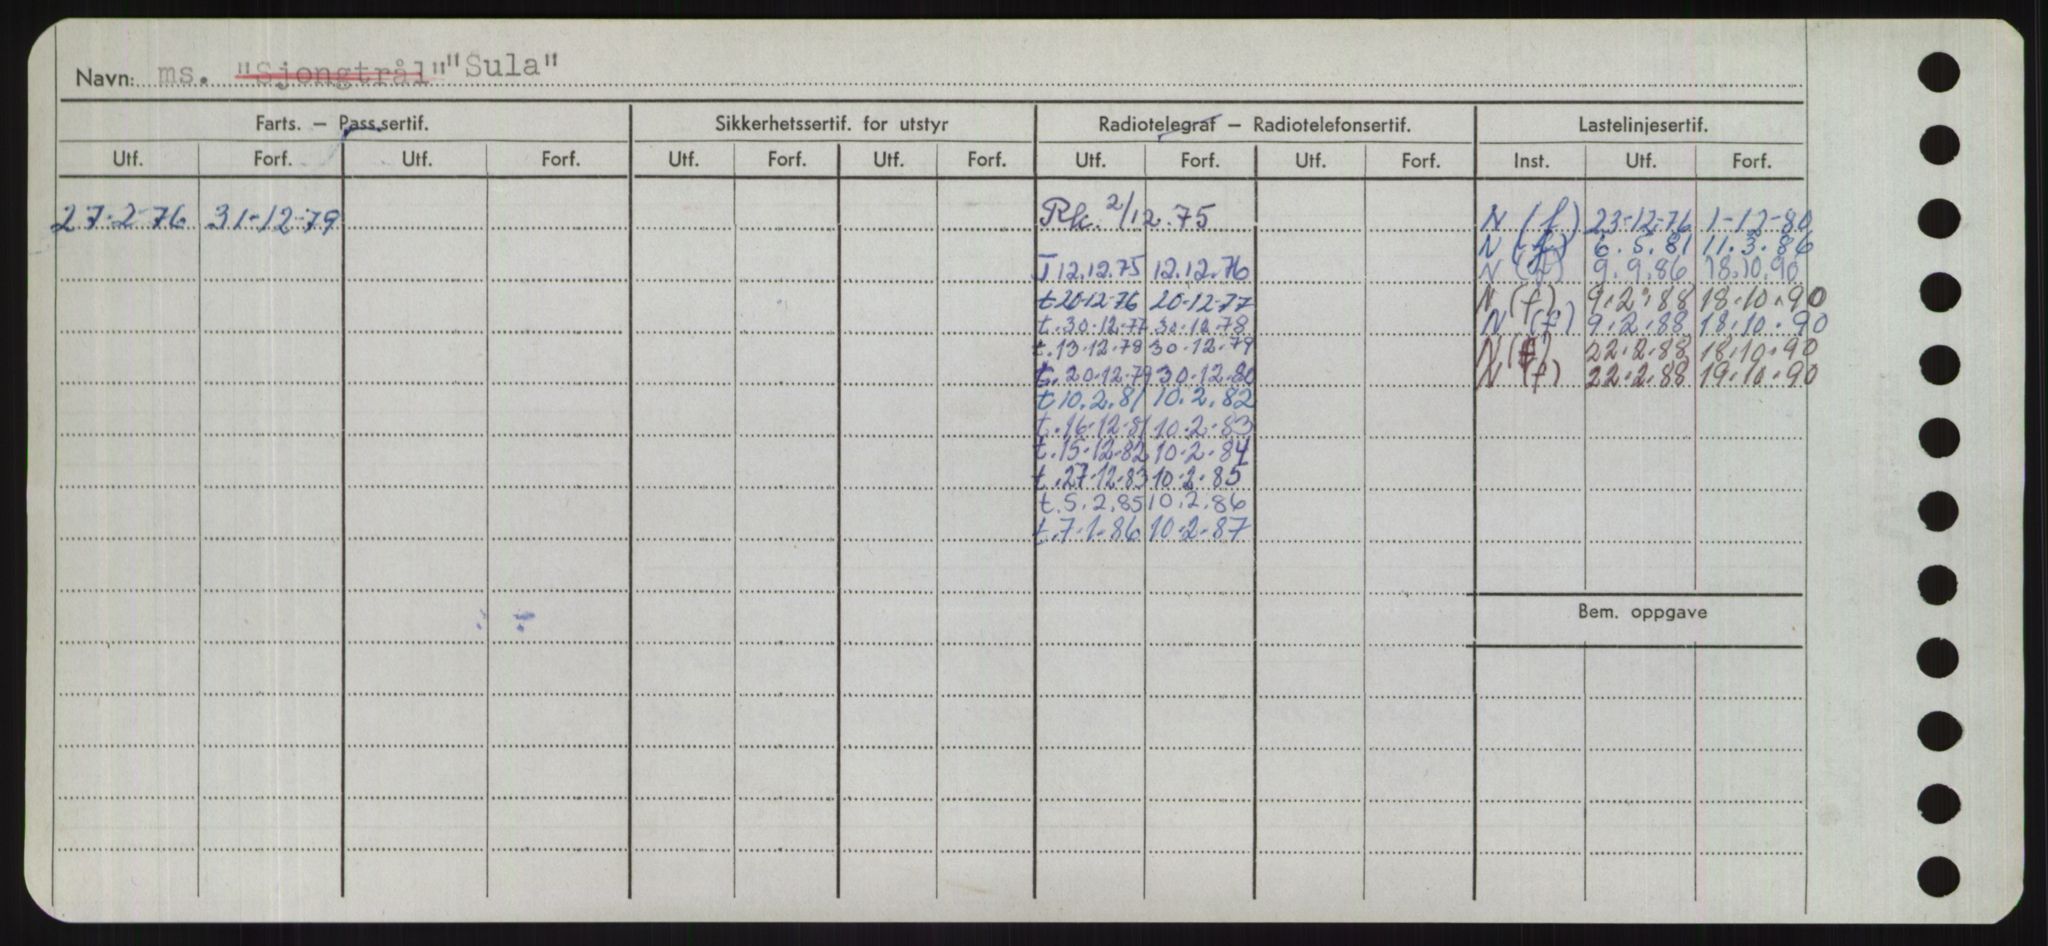 Navn: ms. "Sjongtrål" "Sula"
Farts. — Pass.sertif. Sikkerhetssertif. for utstyr Radiotelegraf — Radiotelefonsertif. Lastelinjesertif.
Utf. Forf. Utf. Forf. Utf. Forf. Utf. Forf. Utf. Forf. Utf. Forf. Inst. Utf. Forf.
27-2-76 31-12-79 Rk. 2/12.75 N (f) 23-12-76 1-12-80
N (f) 6.5.81 11.3.86
T 12.12.75 12.12.76 N (f) 9.9.86 18.10.90
t 20-12-76 20-12-77 N (f) 9.2.88 18.10.90
t.30-12-77 30-12-78 N (f) 9.2.88 18.10.90
t.13-12-78 30-12-79 N (f) 22.2.88 18.10.90
t.20-12-79 30-12-80 N (f) 22.2.88 19.10.90
t 10.2.81 10.2.82
t.16-12-81 10-2-83
t.15-12-82 10-2-84
t.27-12-83 10-2-85
t.5.2.85 10.2.86
t.7-1-86 10-2-87
Bem. oppgave